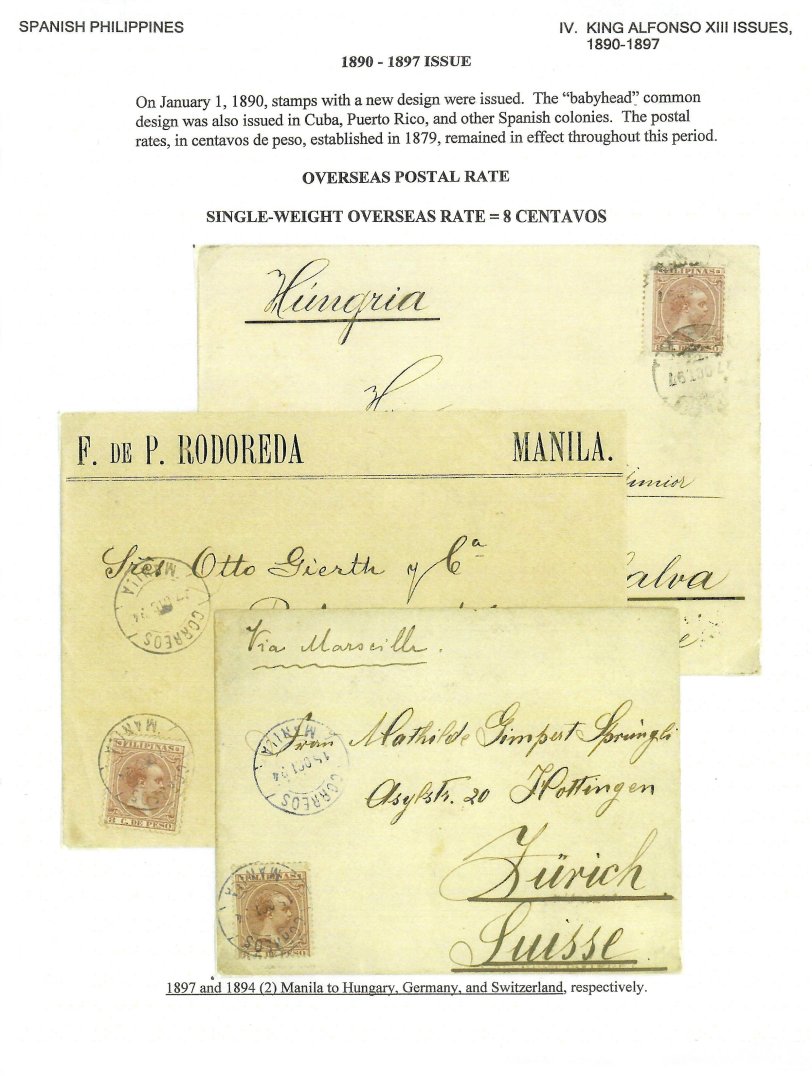 SPANISH PHILIPPINES
IV. KING ALFONSO XIII ISSUES,
1890-1897
1890 - 1897 ISSUE
On January 1, 1890, stamps with a new design were issued. The “babyhead” common
design was also issued in Cuba, Puerto Rico, and other Spanish colonies. The postal
rates, in centavos de peso, established in 1879, remained in effect throughout this period.
OVERSEAS POSTAL RATE
SINGLE-WEIGHT OVERSEAS RATE = 8 CENTAVOS
Húngria
FILIPINAS
OCT 97
F. DE P. RODOREDA MANILA.
Junior
Sres Otto Gierth y Cª
MANILA
CORREOS
alva
Via Marseille.
MANILA
FILIPINAS
C. DE PESO
MANILA
15 OCT 94
CORREOS
Frau Mathilde Gimpert Sprüngli
Asylstr. 20 Hottingen
Zürich
Suisse
MANILA
FILIPINAS
1897 and 1894 (2) Manila to Hungary, Germany, and Switzerland, respectively.